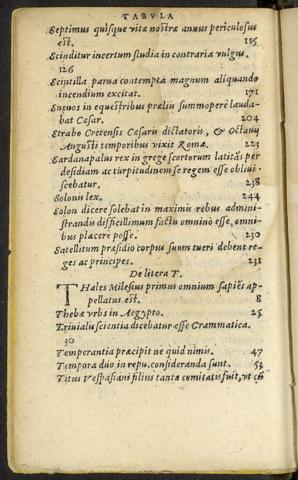 TABVLA
Septimus quisque vitæ nostræ annus periculosus
est. 115
Scinditur incertum studia in contraria vulgus.
126
Scintilla parua contempta magnum aliquando
incendium excitat. 171
Sueuos in equestribus prælijs summoperè lauda-
bat Cæsar. 204
Strabo Cretensis Cæsaris dictatoris, & Octauij
Augusti temporibus vixit Romæ. 223
Sardanapalus rex in grege scortorum latitás per
desidiam ac turpitudinem se regem esse obliui-
scebatur. 238
Solonis lex. 244
Solon dicere solebat in maximis rebus admini-
strandis difficillimum factu omninò esse, omni-
bus placere posse. 230
Satellitum præsidio corpus suum tueri debent re-
ges ac principes. 231
De litera T.
THales Milesius primus omnium sapiẽs ap-
pellatus est. 8
Thebæ vrbs in Aegypto. 25
Triuialu scientia dicebatur esse Grammatica.
30
Temperantia præcipit ne quid nimis. 47
Tempora duo in repu. consideranda sunt. 53
Titus Vespasiani filius tanta comitatis fuit, vt